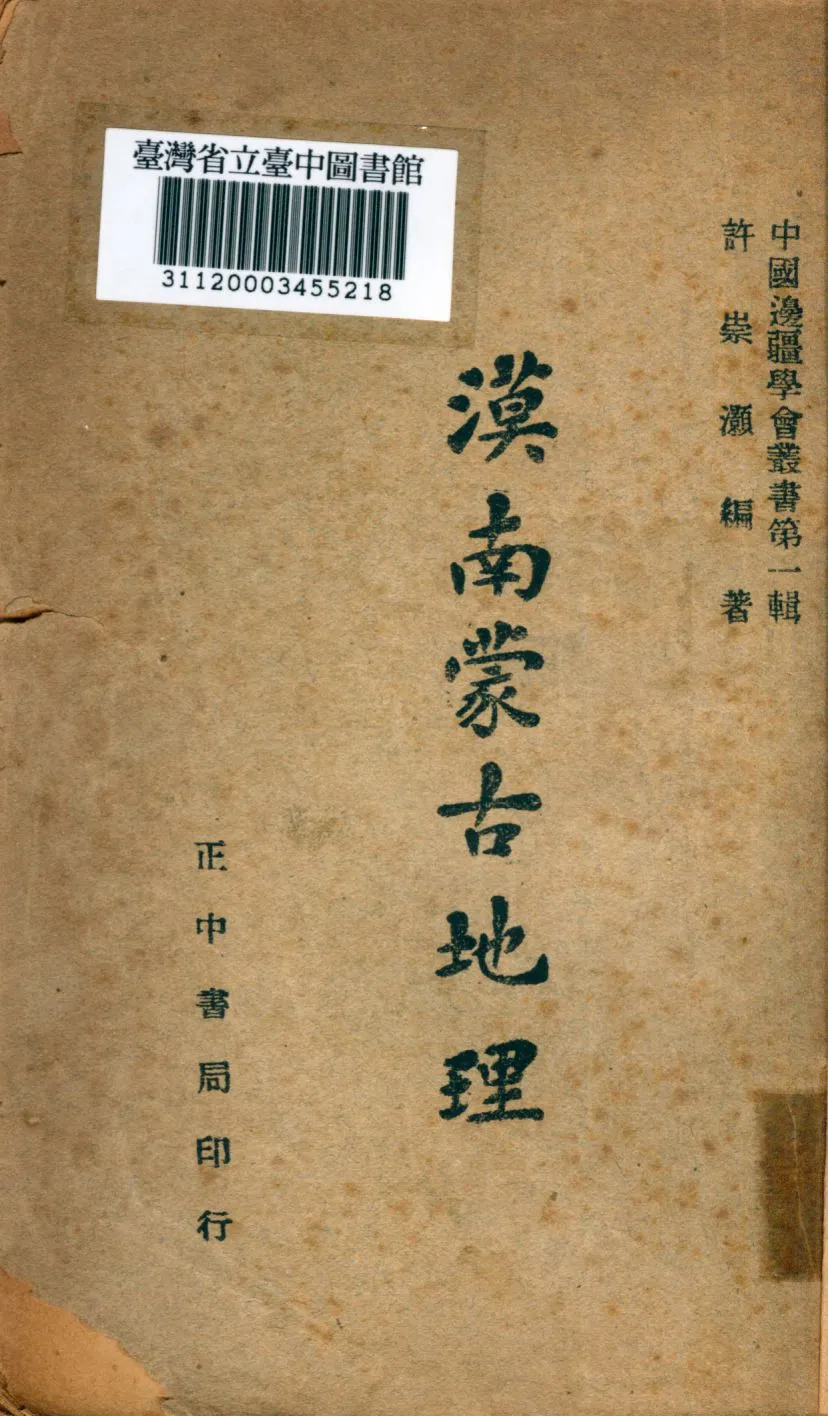 臺灣省立臺中圖書館
31120003455218
中國邊疆學會叢書第一輯
許崇灝編著
漠南蒙古地理
正中書局印行